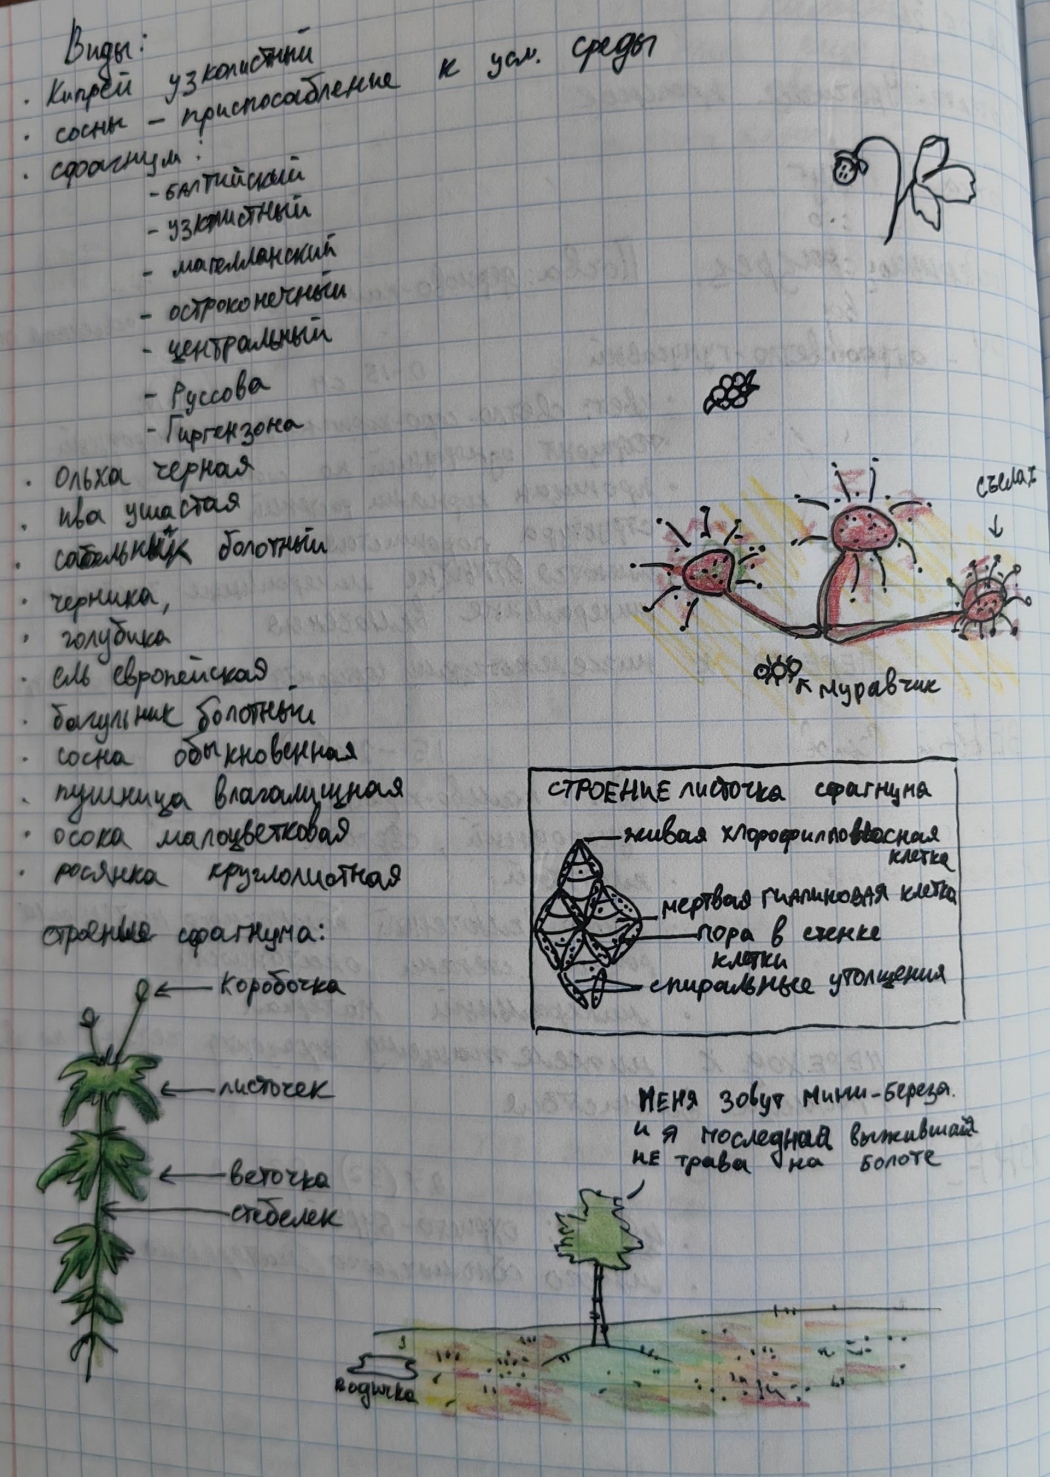 Виды:
· Кипрей узколистный
· сосны – приспособление к усл. среды
· сфагнум:
- балтийский
- узклистный
- магелланский
- остроконечный
- центральный
- Руссова
- Гиргензона
· ольха черная
· ива ушастая
· сабельник болотный
· черника,
· голубика
· ель европейская
· багульник болотный
· сосна обыкновенная
· пушица влагалищная
· осока малоцветковая
· росянка круглолистная
съела
муравчик
СТРОЕНИЕ листочка сфагнума
живая хлорофиллоносная
клетка
мертвая гиалиновая клетка
пора в стенке
клетки
спиральные утолщения
строение сфагнума:
коробочка
листочек
веточка
стебелек
МЕНЯ ЗОВУТ Мини-береза.
и я последняя выжившая
НЕ трава на болоте
водичка